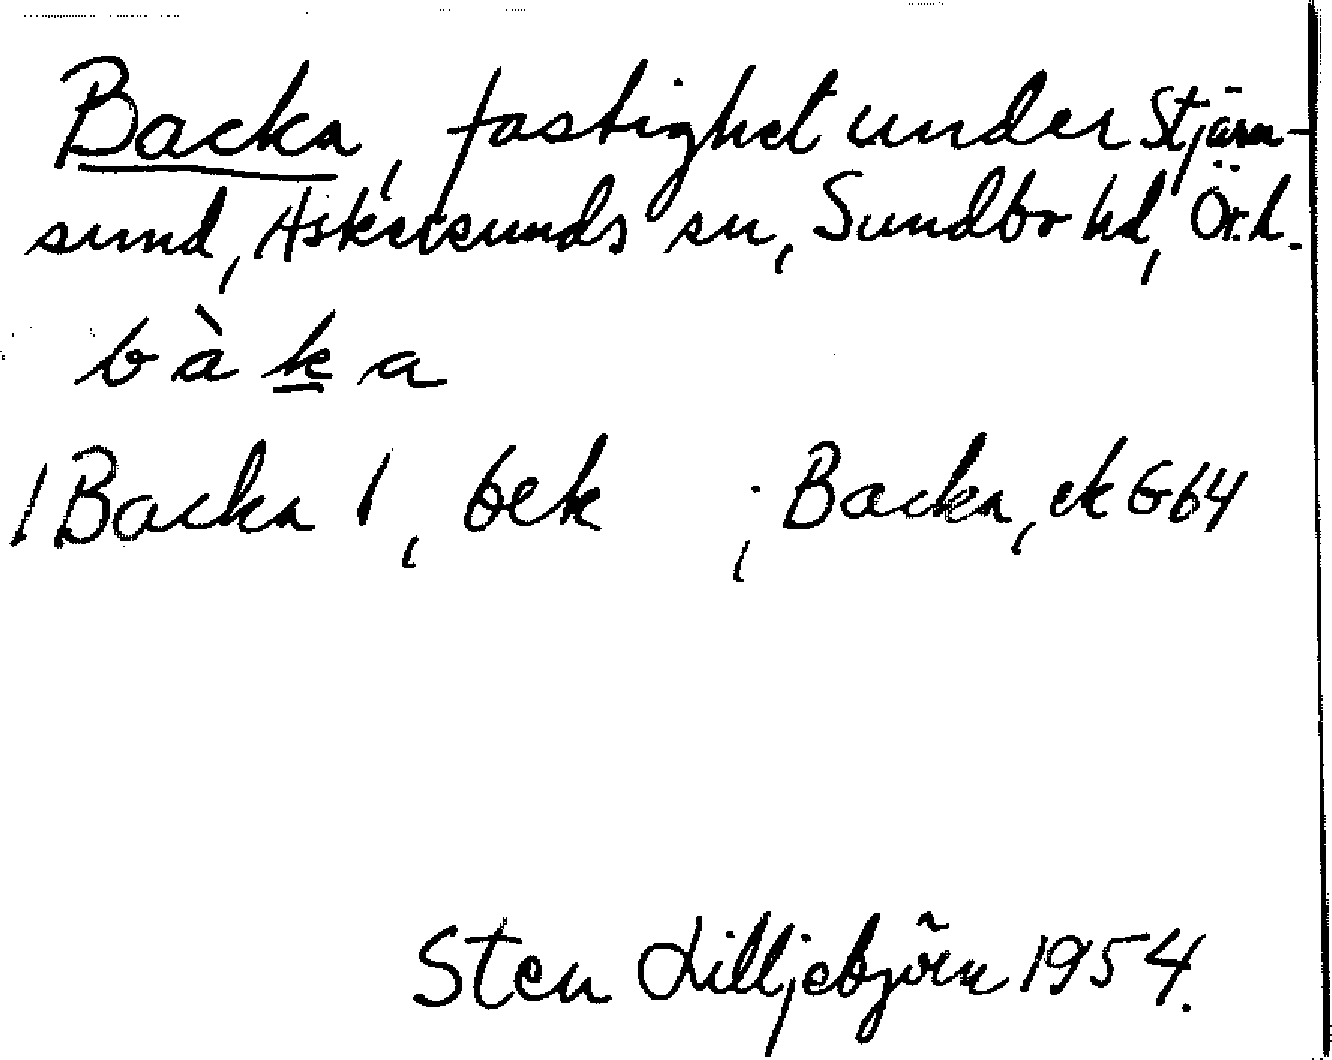 Backa, fastighet under Stjärn-
sund, Askersunds sn, Sundbo hd, Ör.l.
bàka
/Backa/, bek ; Backa, ek G64
Sten Lilljebjörn 1954.